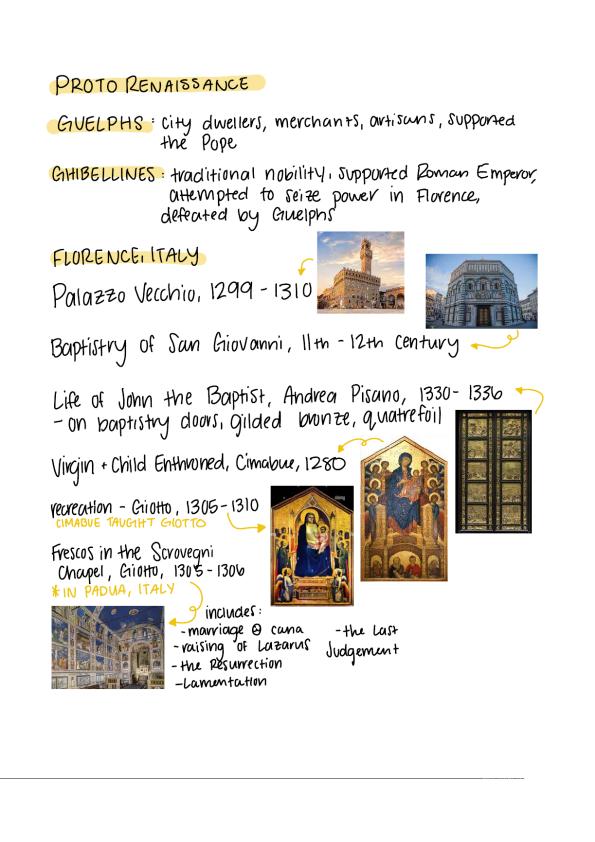 PROTO RENAISSANCE
GUELPHS: city dwellers, merchants, artisans, supported
the Pope
GHIBELLINES: traditional nobility, supported Roman Emperor,
attempted to seize power in Florence,
defeated by Guelphs
FLORENCE, ITALY
Palazzo Vecchio, 1299 - 1310
Baptistry of San Giovanni, 11th - 12th century
Life of John the Baptist, Andrea Pisano, 1330 - 1336
- on baptistry doors, gilded bronze, quatrefoil
Virgin + Child Enthroned, Cimabue, 1280
recreation - Giotto, 1305 - 1310
CIMABUE TAUGHT GIOTTO
Frescos in the Scrovegni
Chapel, Giotto, 1305 - 1306
* IN PADUA, ITALY
includes:
- marriage @ cana
- raising of Lazarus
- the Resurrection
- Lamentation
- the Last
Judgement